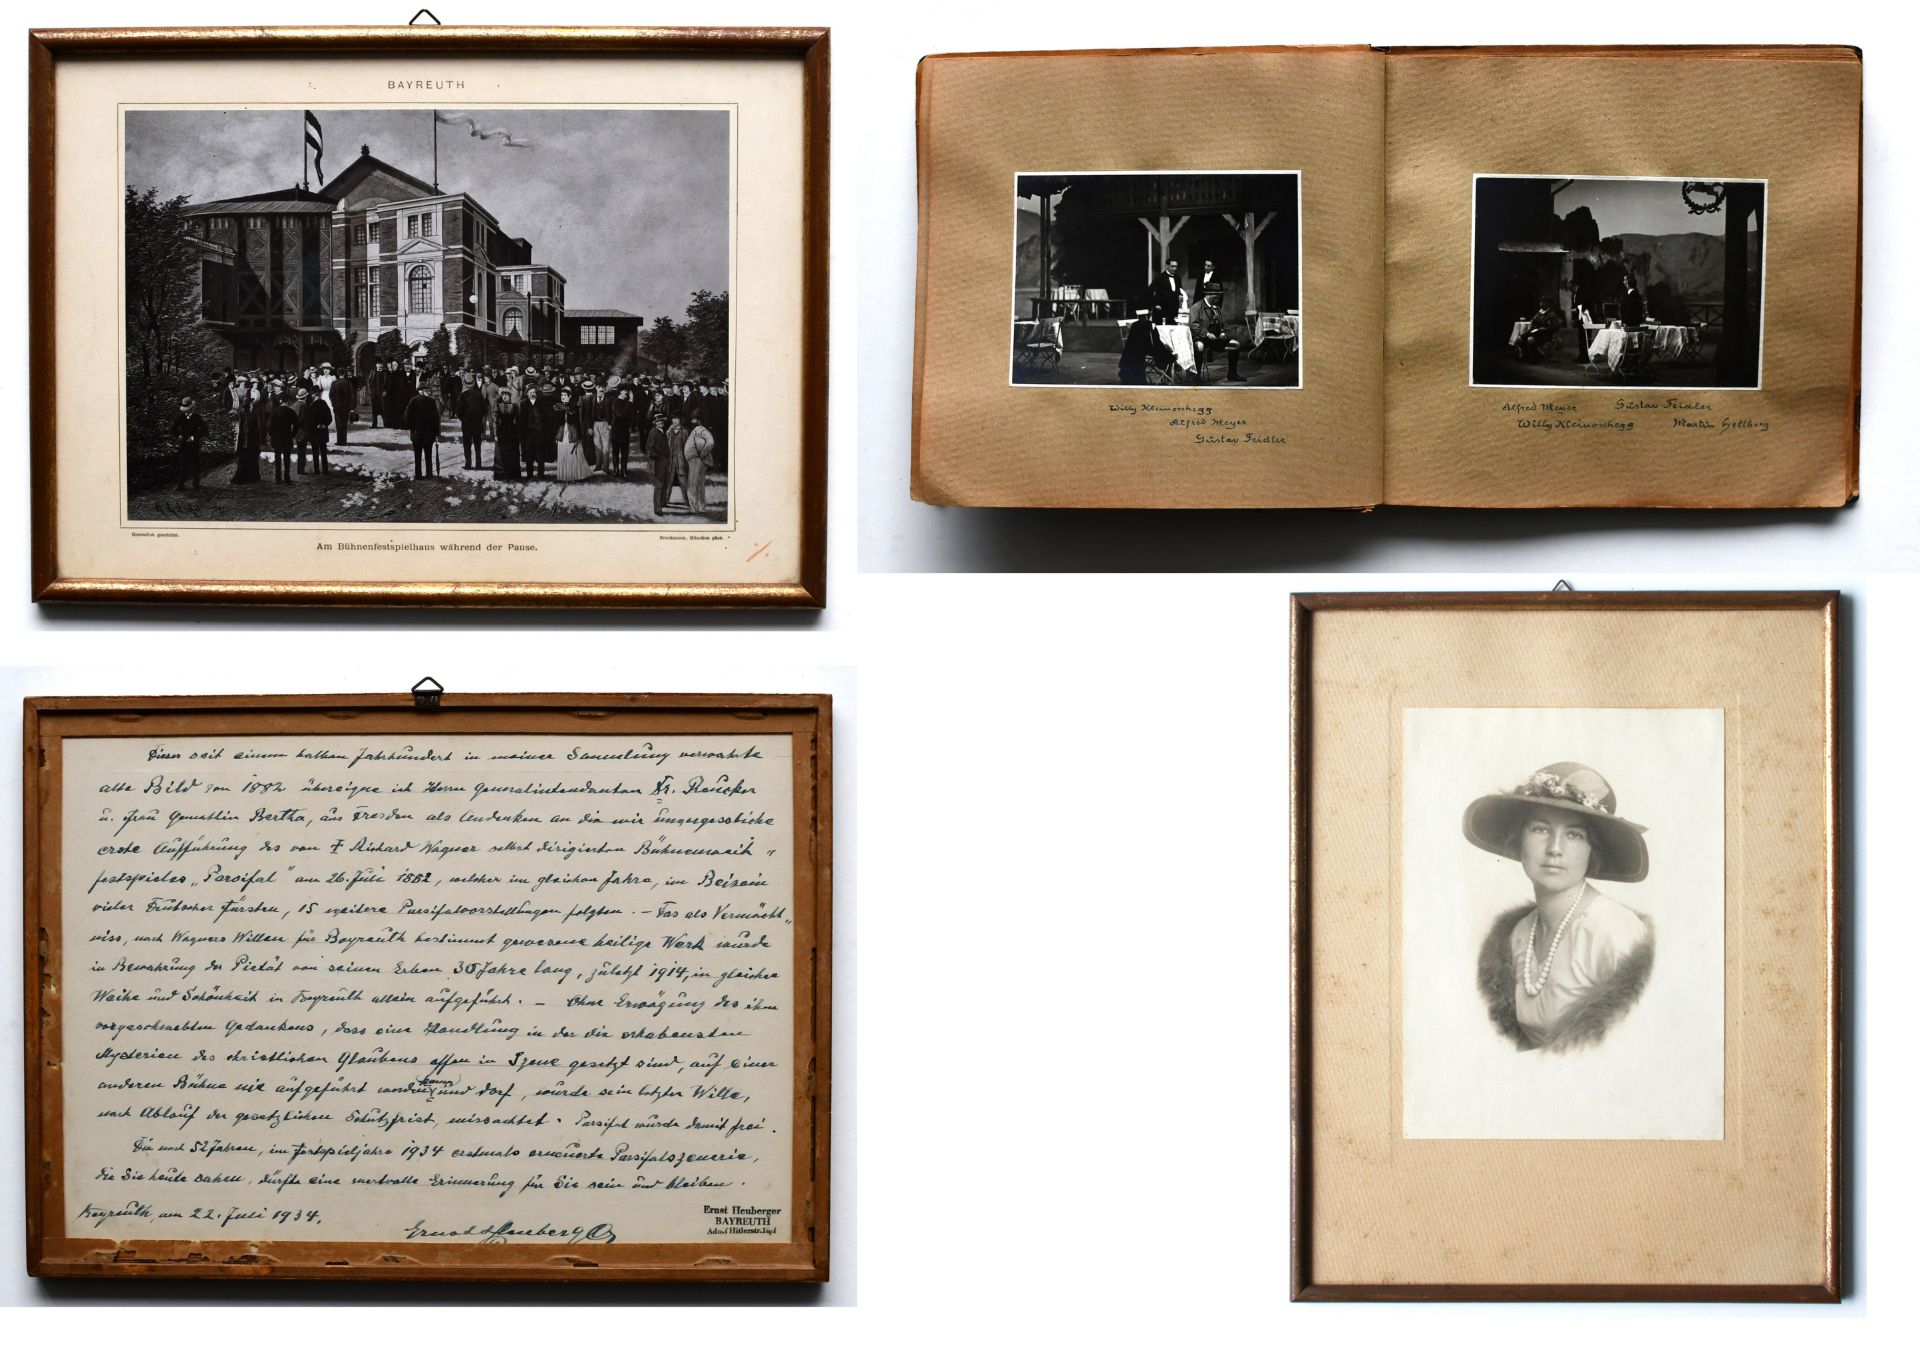 BAYREUTH
Gesetzlich geschützt.
Bruckmann, München phot.
Am Bühnenfestspielhaus während der Pause.
Willy Kleinoschegg
Alfred Meyer
Gustav Feidler
Alfred Meyer Gustav Feidler
Willy Kleinoschegg Martin Hellberg
Dieses seit einem halben Jahrhundert in meiner Sammlung verwahrte
alte Bild von 1882 übereigne ich Herrn Generalintendanten Dr. Reucker
u. Frau Gemahlin Bertha, aus Dresden als Andenken an die mir unvergessliche
erste Aufführung des von † Richard Wagner selbst dirigierten Bühnenweih-
festspieles „Parsifal" am 26. Juli 1882, welcher im gleichen Jahre, im Beisein
vieler Deutscher Fürsten, 15 weitere Parsifalvorstellungen folgten. – Das als Vermächt-
niss, nach Wagners Willen für Bayreuth bestimmt gewesene heilige Werk wurde
in Bewahrung der Pietät von seinen Erben 30 Jahre lang, zuletzt 1914, in gleicher
Weihe und Schönheit in Bayreuth allein aufgeführt. – Ohne Erwägung des ihm
vorgeschwebten Gedankens, dass eine Handlung in der die erhabensten
Mysterien des christlichen Glaubens offen in Szene gesetzt sind, auf einer
anderen Bühne nie aufgeführt werden kann und darf, wurde sein letzter Wille,
nach Ablauf der gesetzlichen Schutzfrist, missachtet. Parsifal wurde damit frei.
Die nach 52 Jahren, im Festspieljahre 1934 erstmals erneuerte Parsifalszenerie,
die Sie heute sahen, dürfte eine wertvolle Erinnerung für Sie sein und bleiben.
Bayreuth, am 22. Juli 1934.
Ernst Heuberger
Ernst Heuberger
BAYREUTH
Adolf Hitlerstr.